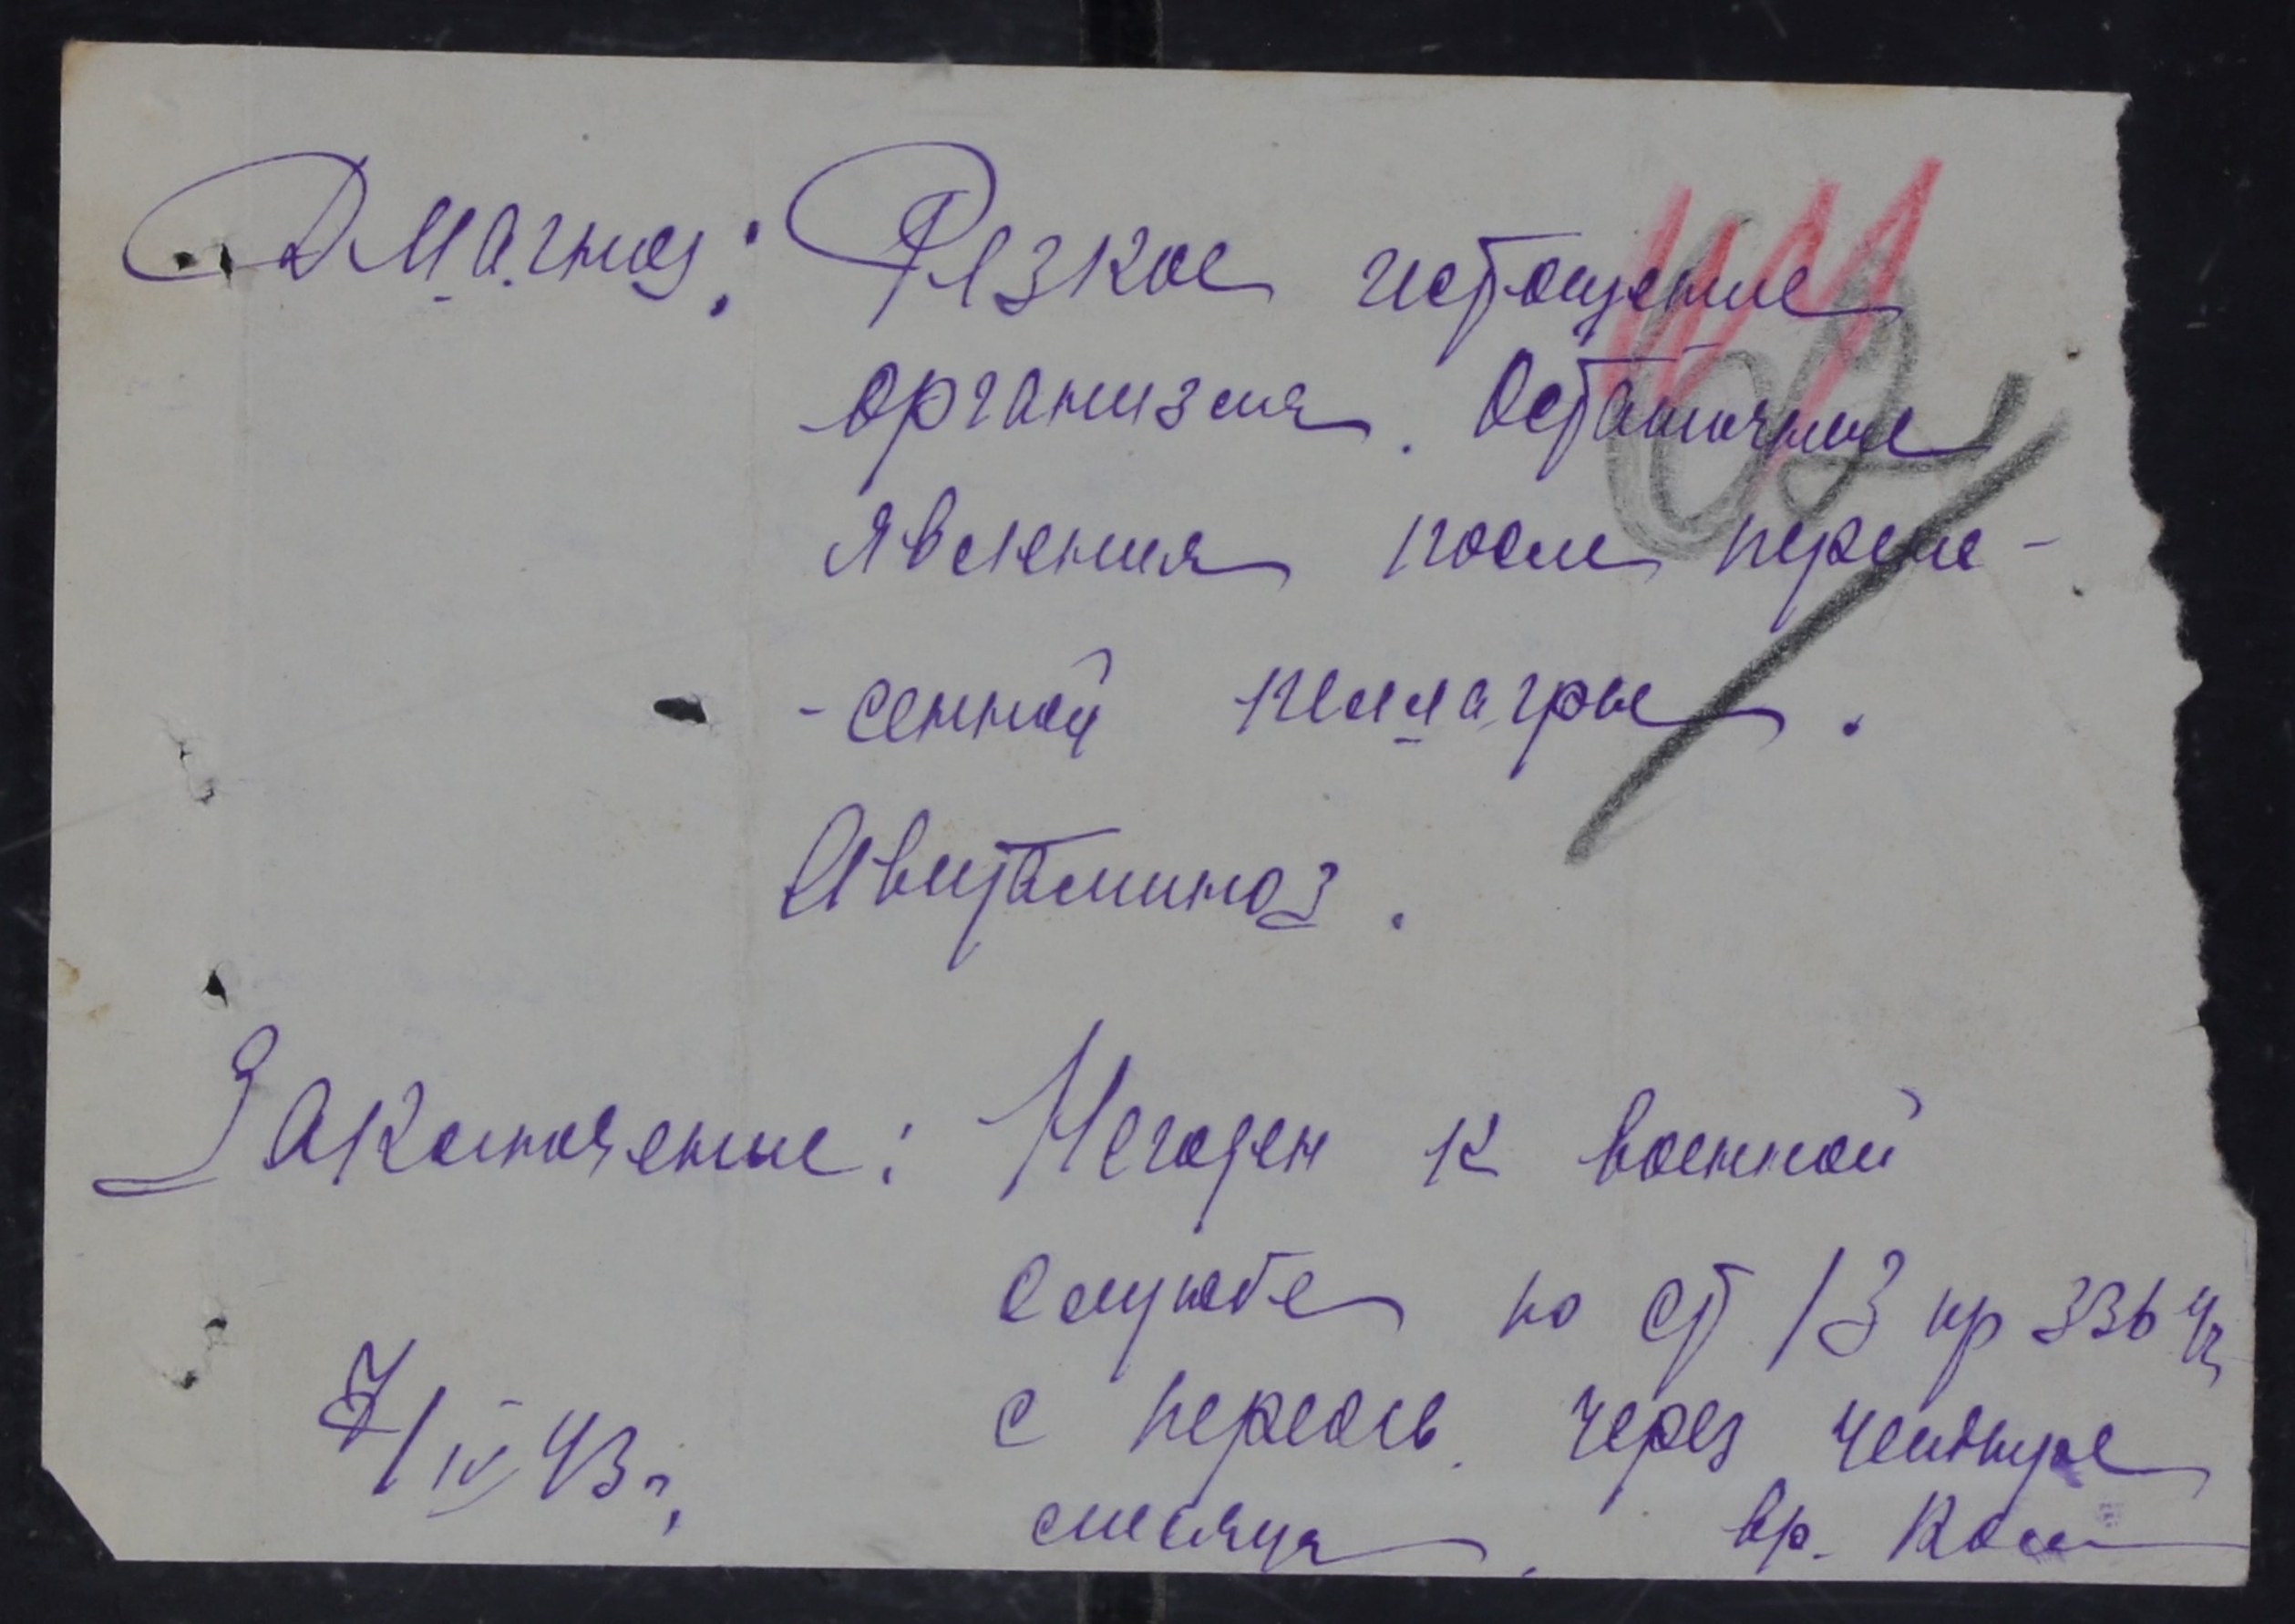 Диагноз: Резкое истощение
организма. Остаточные
явления после перене-
-сенной пеллагры.
Авитаминоз.
Заключение: Негоден к военной
службе по ст 13 пр 336 42
с переосв. через четыре
7/IV 43 г.
месяца. вр. Кам